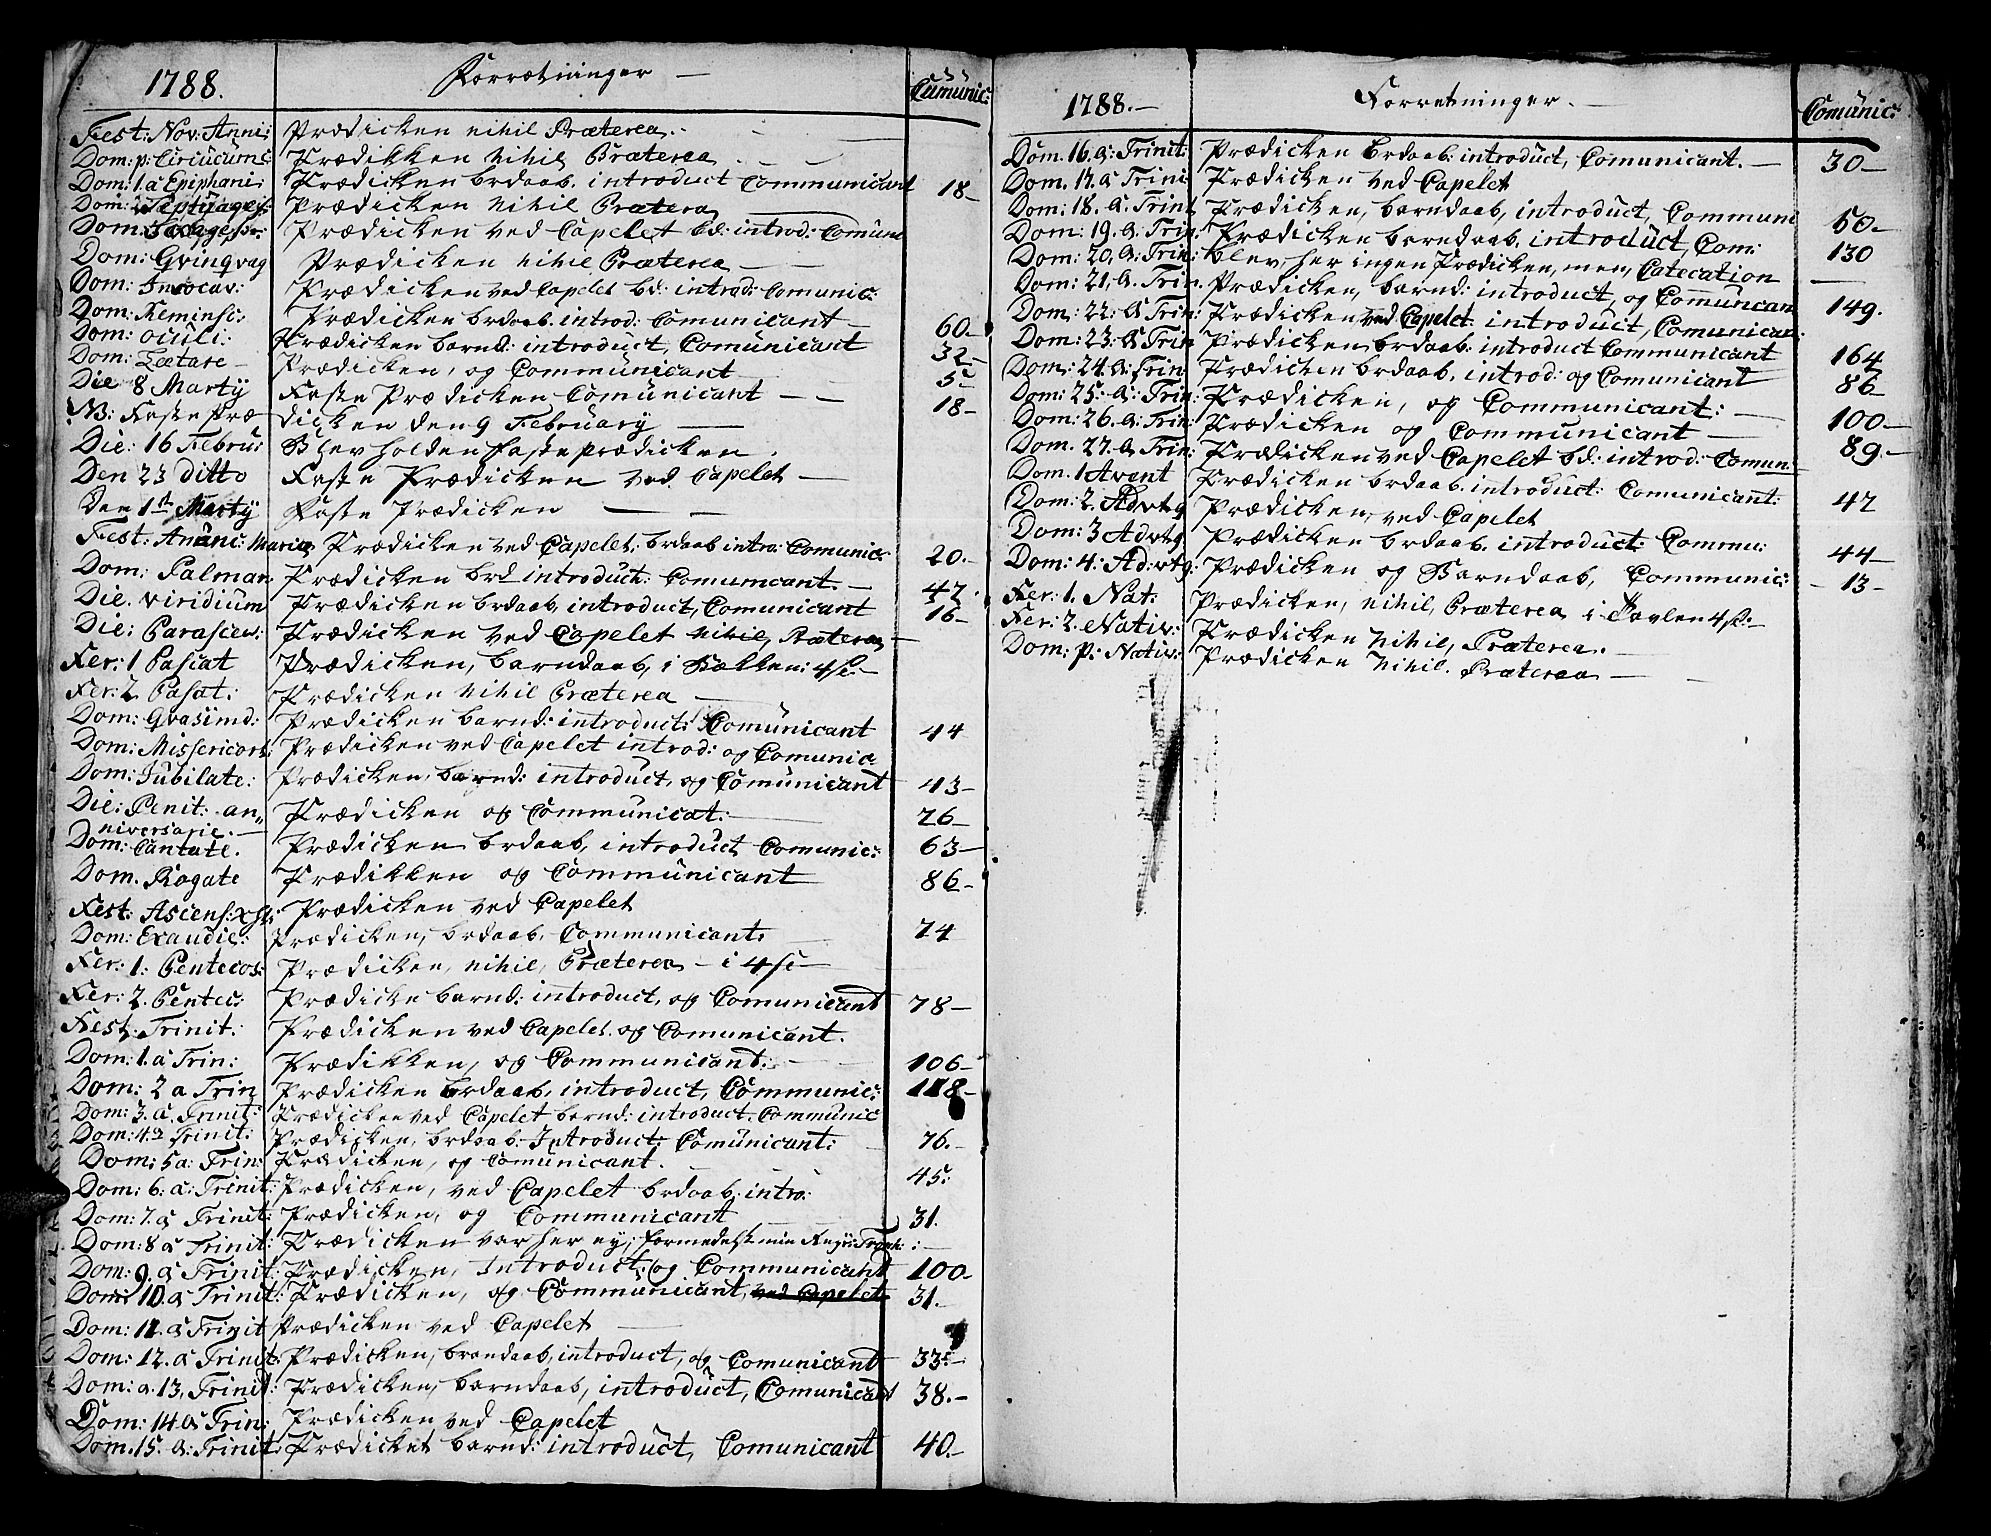 1788. Forretninger — Cumūnic:
Fest: Nov: Anni: Prædicken nihil Præterea.
Dom: p: Circūcūmc: Prædikken Nihil Præterea
Dom: 1. a Epiphani: Prædicken brdaab. introduct Communicant 18–
Dom: Septuages: Prædicken Nihil Præterea
Dom: Sexages: Prædicken ved Capelet bd: introd: Comun
Dom: Gvinqvag Prædicken Nihil Præterea —
Dom: Invocav: Prædicken ved Capelet bd: introd: Comunic:
Dom: Reminsc: Prædicken brdaab. introd: Comunicant — 60.–
Dom: oculi: Prædicken barnd: introduct, Comūnicant 32–
Dom: Lætare – Prædicken, og Commūnicant — 5–
Die 8 Martÿ Faste Prædicken Comūnicant — 18–
NB: Faste Præ dicken den 9 Februarÿ —
Die: 16 Febru: Blev holden faste prædicken.
Den 23 ditto Faste Prædicken ved Capelet —
Den 1st Martÿ Faste Prædicken —
Fest: Anūnc: Mariæ Prædicken ved Capelet: brdaab intro: Comunic: 20.–
Dom: Palmar Prædicken brd introduct: Comunicant. — 47.
Die. viridium Prædicken brdaab, introduct, Comūnicant 16–
Die: Parascev: Prædicken ved Capelet Nihil, Præterea —
Fer: 1 Pascat Prædicken, barndaab, i Bækken: 4 sl.–
Fer: 2 Pasat: Prædicken Nihil Præterea —
Dom: Gvasimd: Prædicken barnd: introduct: Comūnicant 44
Dom: Missericord: Prædicken ved Capelet introd: og Comunic:
Dom: Jubilate: Prædicken, barnd: introdūct, og Comūnicant 43–
Die: Penit: an„ Prædicken og Communicat: — 26–
niversarie. —
Dom: Cantate. Prædicken brdaab, introdūct Comunic: 63–
Dom. Rogate Prædikken og Commūnicant 86–
Fest: Ascens: Xsti: Prædicken ved Capelet
Dom: Exaudie: Prædicken, brdaab, Communicant: 74
Fer: 1: Pentecos: Prædicken, nihil, Præterea – i 4 sl–
Fer: 2. Pentec: Prædicke barnd: introduct, og Comunicant 78–
Fest: Trinit: Prædicken ved Capelet og Comunicant.
Dom: 1. a Trin: Prædikken, og Communicant: – 106–
Dom: 2 a Trin Prædicken brdaab, introduct, Communic: 118–
Dom: 3. a Trinit: Prædicken ved Capelet barnd: introduct. Commūnic
Dom: 4. a Trinit: Prædicken, brdaab. Introduct: Comūnicant: 76.–
Dom: 5 a: Trin: Prædicken, og Comūnicant.
Dom: 6. a: Trinit: Prædicken, ved Capelet brdaab. intro: 45:
Dom: 7. a Trinit: Prædicken, og Communicant 31.
Dom: 8 a Trinit: Prædicken var her ey, formedelst min Reyse: :–
Dom: 9. a Trinit: Prædicken, Introduct, og Communicant 100–
Dom: 10. a Trinit: Prædicken, og Commūnicant, ved Capelet 31.–
Dom: 11. a Trinit Prædicken ved Capelet —
Dom: 12. a Trinit: Prædicken, brandaab, introduct, og Comunicant 33–
Dom: a. 13. Trinit: Prædicken, barndaab, introdūct, Comūnicant 38.–
Dom: 14. a Trin: Prædicken ved Capelet
Dom. 15. a: Trinit: Prædicket barnd: introdūct, Comunicant 40.–
1788.– Forretninger. — Comūnic:
Dom. 16. a: Trinit: Prædicken brdaab: introdūct, Comunicant. — 30–
Dom. 17. a Trini Prædicken ved Capelet
Dom: 18. a. Trint Prædicken, barndaab, introdūct, Commūni 50.–
Dom: 19. a: Trin: Prædicken barndaab. introdūct, Com: 130
Dom: 20, a: Trin: blev her ingen Prædicken, men, Catecation —
Dom: 21, a Trin. Prædicken, barnd: introduct, og Comuncan 149.
Dom: 22: a Trin: Prædicken ved Capelet introduct, Comunican:
Dom: 23: a Trin Prædicken, brdaab: introduct Communicant 164
Dom: 24. a: Trin Prædicken brdaab. introd: og Comunicant 86–
Dom: 25: a: Trin: Prædicken, og Communicant: — 100–
Dom: 26. a: Trin: Prædicken og Commūnicant — 89.–
Dom. 27. a Trin: Prædicken ved Capelet bd: introd: Comun:
Dom. 1 Avent Prædicken brdaab. introdūct: Comunicant: 47
Dom: 2. Advtg Prædicken, ved Capelet
Dom: 3 Advtg Prædicken brdaab. introduct: Commu: 44–
Dom: 4: Ad:vtg: Prædicken og Barndaab, Communic: – 13–
Fer: 1. Nat: Prædicken, nihil, Præterea i Tavlen 4 sl.–
Fer: 2. Nativ: Prædicken Nihil, Præterea.
Dom: p: Nativ: Prædicken Nihil. Præterea —